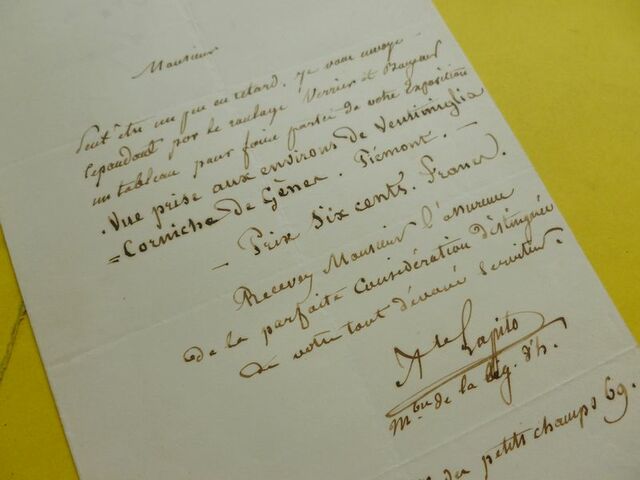 Monsieur
Peut être un peu en retard, je vous envoye
Cependant par le roulage Verrier et
un tableau pour faire partie de votre Exposition
. Vue prise aux environs de Ventimiglia
= Corniche de Gênes. Piémont. —
— Prix Six cents. Francs.
Recevez Monsieur l'assurance
de la parfaite Considération distinguée
de votre tout dévoué Serviteur.
Ate Lapito
Mbre de la lég. d'h.
des petits champs 69.